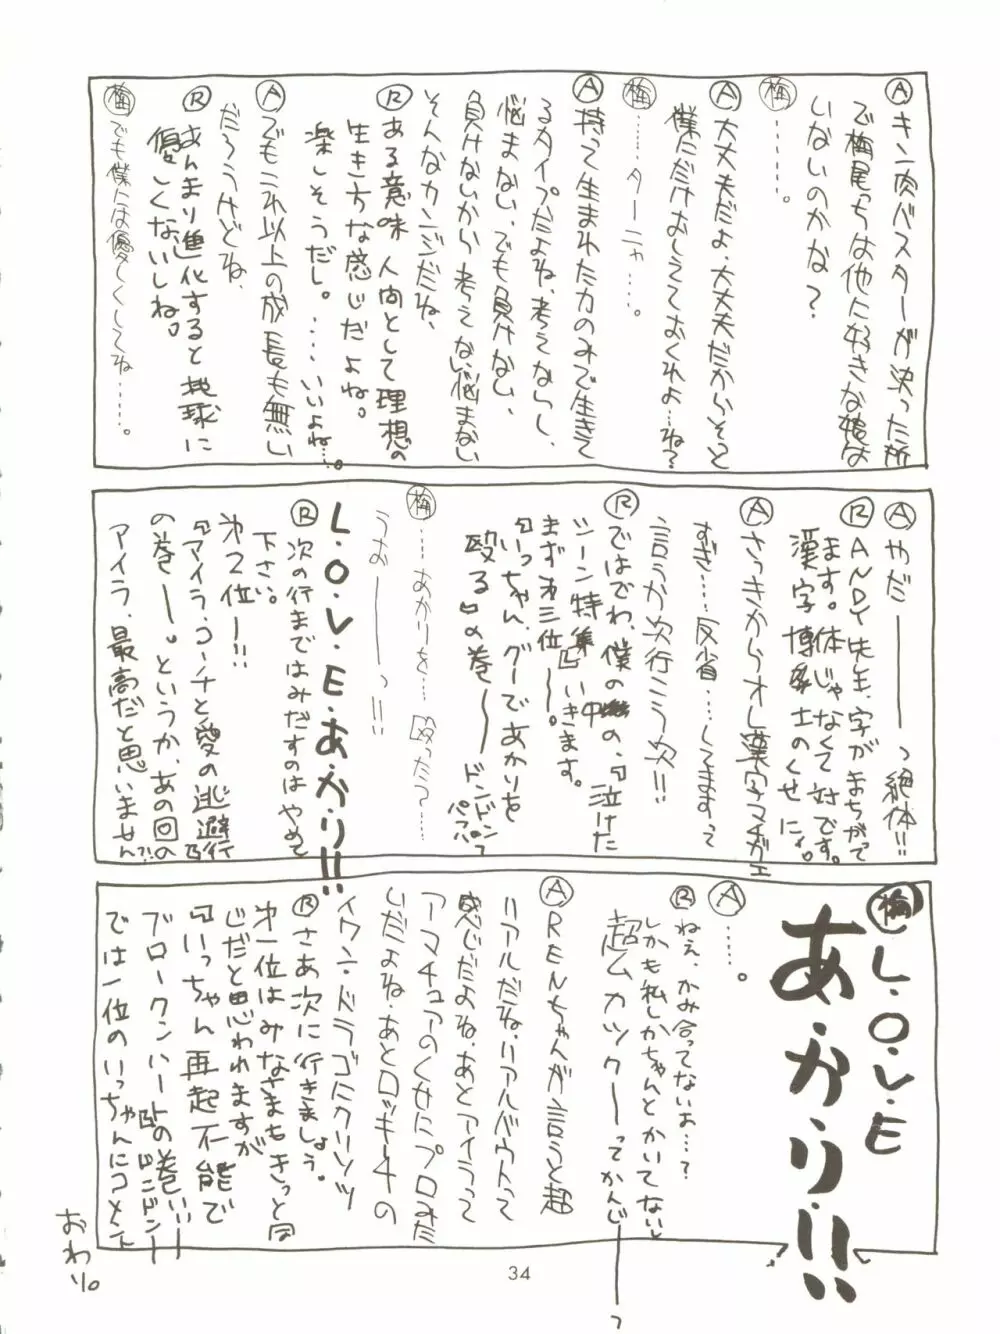 Ⓐキン肉バスターが決った所
で梅尾っちは他に好きな娘は
いないのかな?
㊑………。
Ⓐ大丈夫だよ、大丈夫だからそっと
僕にだけおしえておくれよ…ね?
梅………ターニャ……。
Ⓐ持って生まれた力のみで生きて
るタイプだよね、考えないし、
悩まない、でも負けない、
負けないから考えない、悩まない
そんなカンジだね、
Ⓡある意味、人間として理想の
生き方な感じだよね。
楽しそうだし。・・・・いいよね…。
Ⓐでもこれ以上の成長も無い
だろうけどね、
Ⓡあんまり進化すると地球に
優しくないしね。
梅でも僕には優しくしてね……。
Ⓐやだ――――っ絶体!!
ⓇANDY先生、字がまちがって
ます。体じゃなくて対です。
漢字博士のくせにょ。
Ⓐさっきからオレ漢字マチガエ
すぎ……反省……してますって
言うか次行こう次!!
Ⓡではでわ、僕の中の、『泣けた
シーン特集』いきます。
まず才三位――。
『いっちゃん、グーであかりを
殴る』の巻――ドンドンパフパフっ
梅……あかりを…殴ったっ……
うお――――っ!!
L・O・V・E・あ・か・り!!
Ⓡ次の行まではみだすのはやめて
下さい。
才2位――!!
『アイラ、コーチと愛の逃避行』
の巻――。というか、あの回の
アイラ、最高だと思いません?!
梅L・O・V・E
あ・か・り・!!
Ⓐ……。
Ⓡねぇ、かみ合ってないよ…?
しかも私しかちゃんとかいてないし
超ムカック――ってかんじ――――っ
ⒶRENちゃんが言うと超
リアルだね、リアルバウトって
感じだよね、あとアイラって
アーマチュアのくせにプロみた
いだよね、あとロッキー4の
イワン・ドラゴにクリソツ
Ⓡさあ次に行きましょう。
才一位はみなさまもきっと同
じだと思われますが
『いっちゃん再起不能で
ブロークンハート』の巻ぃ!!ドンドン――
では一位のいっちゃんにコメント
おわり。
34